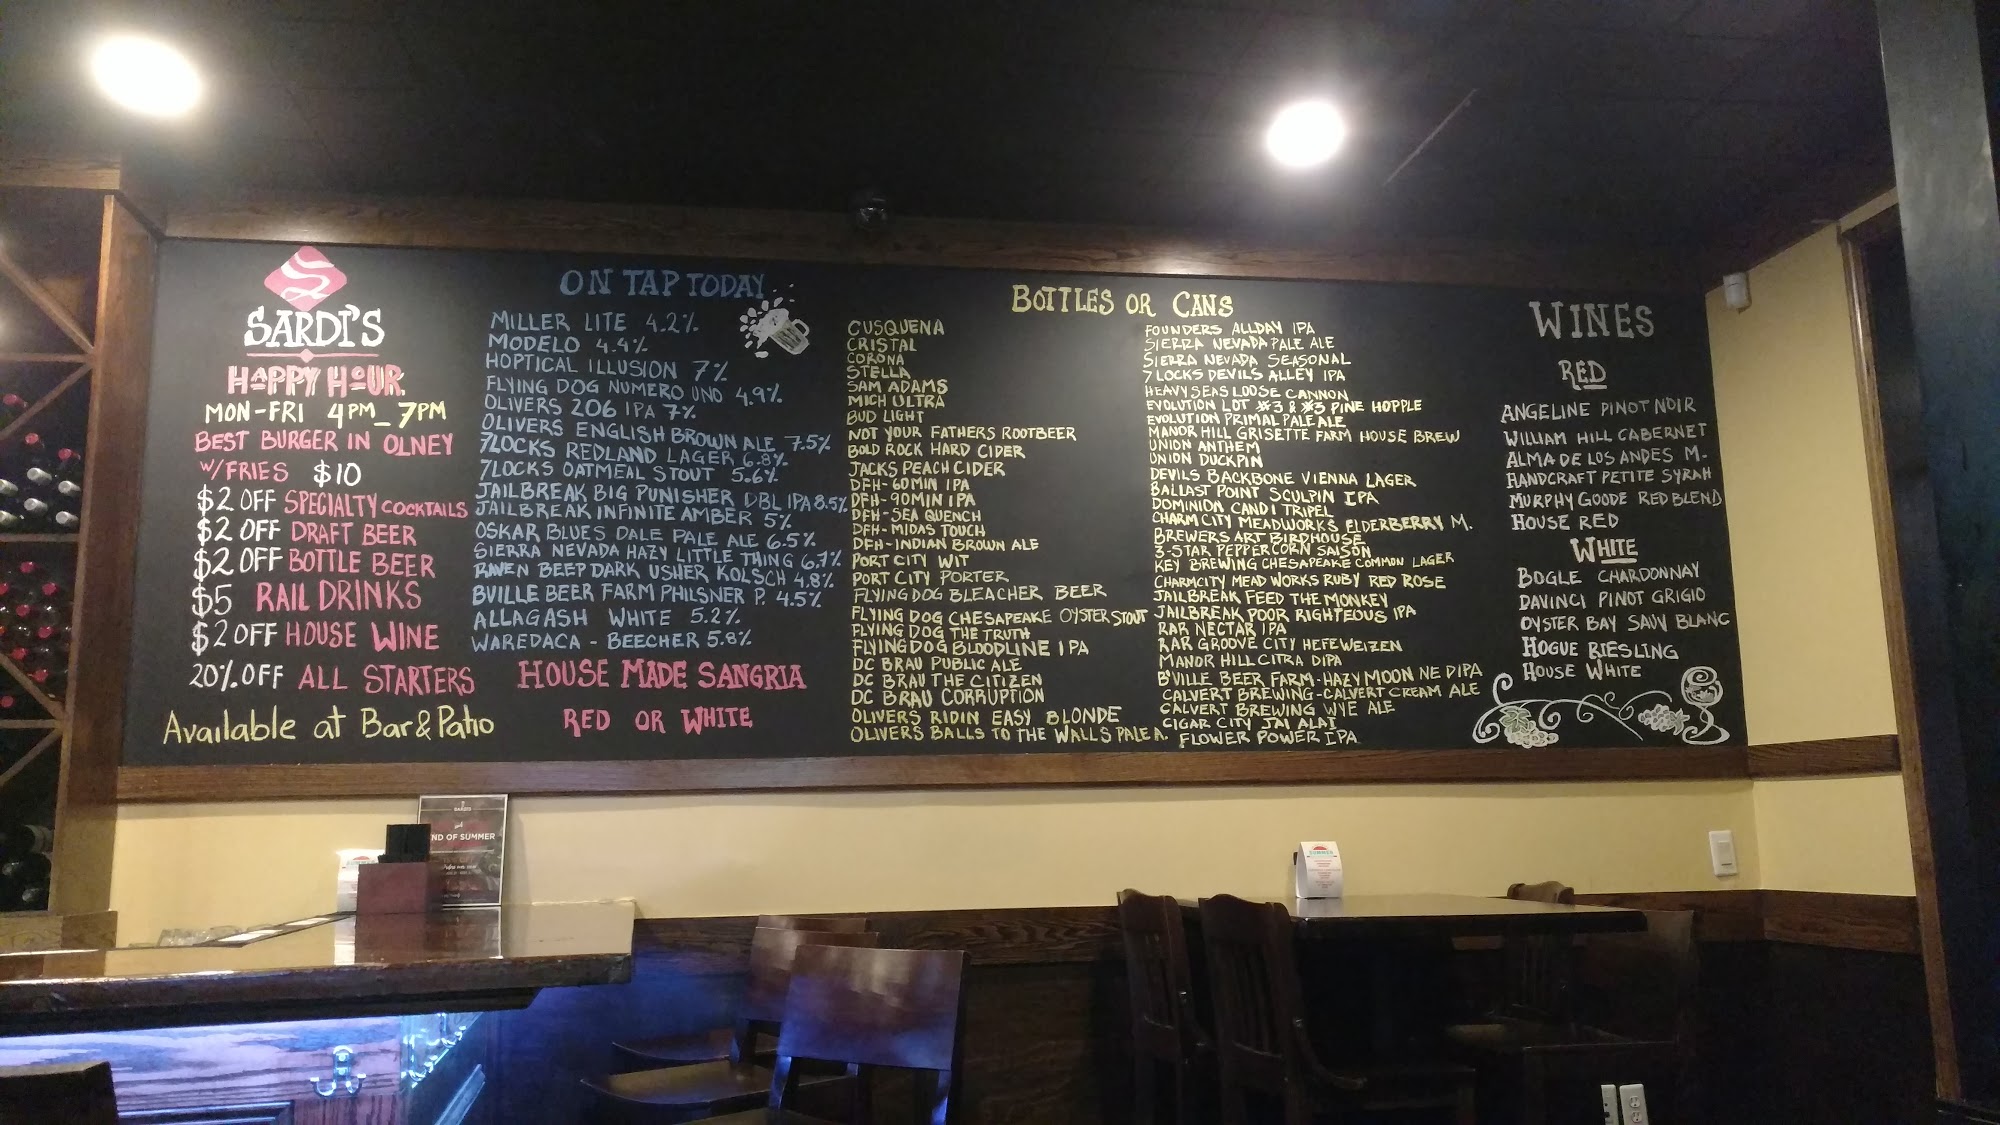 SARDI'S
HAPPY HOUR
MON-FRI 4PM_7PM
BEST BURGER IN OLNEY
W/FRIES $10
$2 OFF SPECIALTY COCKTAILS
$2 OFF DRAFT BEER
$2 OFF BOTTLE BEER
$5 RAIL DRINKS
$2 OFF HOUSE WINE
20% OFF ALL STARTERS
Available at Bar & Patio
ON TAP TODAY
MILLER LITE 4.2%
MODELO 4.4%
HOPTICAL ILLUSION 7%
FLYING DOG NUMERO UNO 4.9%
OLIVERS 206 IPA 7%
OLIVERS ENGLISH BROWN ALE 7.5%
7LOCKS REDLAND LAGER 6.8%
7LOCKS OATMEAL STOUT 5.6%
JAILBREAK BIG PUNISHER DBL IPA 8.5%
JAILBREAK INFINITE AMBER 5%
OSKAR BLUES DALE PALE ALE 6.5%
SIERRA NEVADA HAZY LITTLE THING 6.7%
RAVEN BEER DARK USHER KOLSCH 4.8%
BVILLE BEER FARM PHILSNER P. 4.5%
ALLAGASH WHITE 5.2%
WAREDACA - BEECHER 5.8%
HOUSE MADE SANGRIA
RED OR WHITE
BOTTLES OR CANS
CUSQUENA
CRISTAL
CORONA
STELLA
SAM ADAMS
MICH ULTRA
BUD LIGHT
NOT YOUR FATHERS ROOTBEER
BOLD ROCK HARD CIDER
JACKS PEACH CIDER
DFH- 60MIN IPA
DFH- 90MIN IPA
DFH- SEA QUENCH
DFH- MIDAS TOUCH
DFH- INDIAN BROWN ALE
PORT CITY WIT
PORT CITY PORTER
FLYING DOG BLEACHER BEER
FLYING DOG CHESAPEAKE OYSTER STOUT
FLYING DOG THE TRUTH
FLYING DOG BLOODLINE IPA
DC BRAU PUBLIC ALE
DC BRAU THE CITIZEN
DC BRAU CORRUPTION
OLIVERS RIDIN EASY BLONDE
OLIVERS BALLS TO THE WALLS PALE A.
FOUNDERS ALLDAY IPA
SIERRA NEVADA PALE ALE
SIERRA NEVADA SEASONAL
7 LOCKS DEVILS ALLEY IPA
HEAVY SEAS LOOSE CANNON
EVOLUTION LOT #3 & #3 PINE HOPPLE
EVOLUTION PRIMAL PALE ALE
MANOR HILL GRISETTE FARM HOUSE BREW
UNION ANTHEM
UNION DUCKPIN
DEVILS BACKBONE VIENNA LAGER
BALLAST POINT SCULPIN IPA
DOMINION CANDI TRIPEL
CHARM CITY MEADWORKS ELDERBERRY M.
BREWERS ART BIRDHOUSE
3-STAR PEPPERCORN SAISON
KEY BREWING CHESAPEAKE COMMON LAGER
CHARMCITY MEAD WORKS RUBY RED ROSE
JAILBREAK FEED THE MONKEY
JAILBREAK POOR RIGHTEOUS IPA
RAR NECTAR IPA
RAR GROOVE CITY HEFEWEIZEN
MANOR HILL CITRA DIPA
B'VILLE BEER FARM-HAZY MOON NE DIPA
CALVERT BREWING-CALVERT CREAM ALE
CALVERT BREWING WYE ALE
CIGAR CITY JAI ALAI
FLOWER POWER IPA
WINES
RED
ANGELINE PINOT NOIR
WILLIAM HILL CABERNET
ALMA DE LOS ANDES M.
HANDCRAFT PETITE SYRAH
MURPHY GOODE RED BLEND
HOUSE RED
WHITE
BOGLE CHARDONNAY
DAVINCI PINOT GRIGIO
OYSTER BAY SAUV BLANC
HOGUE RIESLING
HOUSE WHITE
SARDIS
OF SUMMER
SUMMER